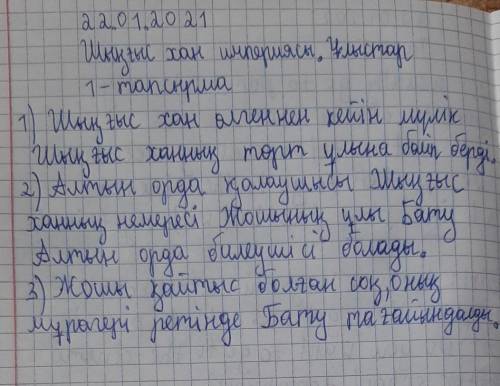 22.01.2021
Шыңғыс хан империясы. Ұлыстар
1-тапсырма
1) Шыңғыс хан өлгеннен кейін мүлік
Шыңғыс ханның төрт ұлына бөліп берді.
2) Алтын орда қалаушысы Шыңғыс
ханның немересі Жошының ұлы Бату
Алтын орда билеушісі болады.
3) Жошы қайтыс болған соң, оның
мұрагері ретінде Бату тағайындалды.